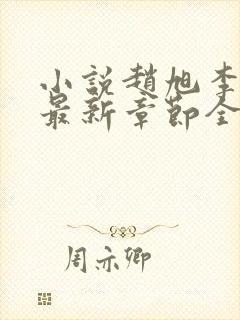 小説趙旭李
最新章節全
周亦卿